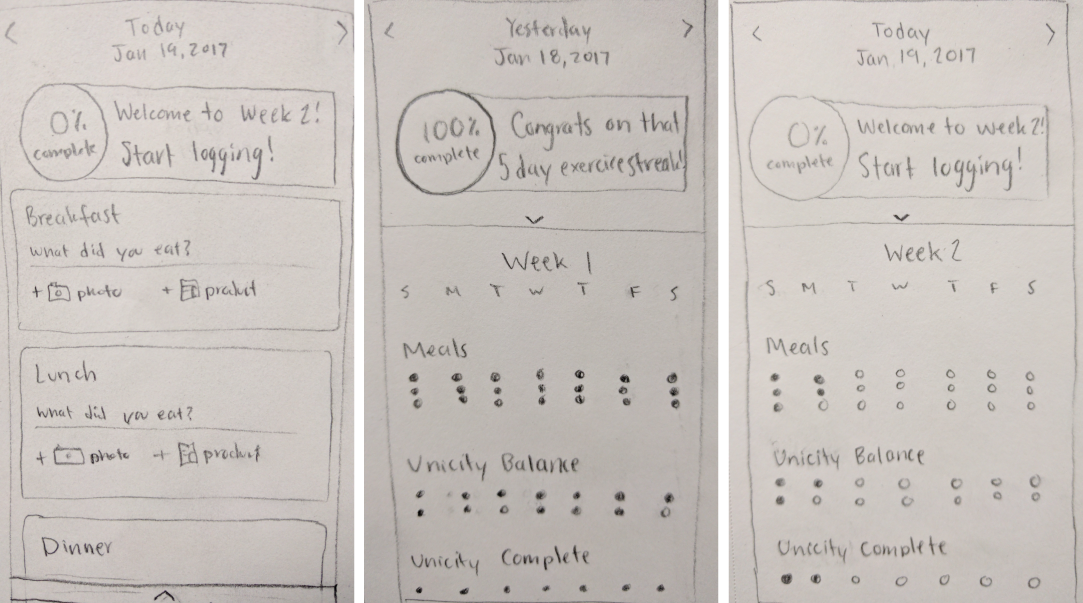 < Today >
Jan 19, 2017
0%
complete
Welcome to week 2!
Start logging!
Breakfast
what did you eat?
+ photo + product
Lunch
what did you eat?
+ photo + product
Dinner
< Yesterday >
Jan 18, 2017
100%
complete
Congrats on that
5 day exercise streak!
Week 1
S M T W T F S
Meals
Unicity Balance
Unicity Complete
< Today >
Jan 19, 2017
0%
complete
Welcome to week 2!
Start logging!
Week 2
S M T W T F S
Meals
Unicity Balance
Unicity Complete